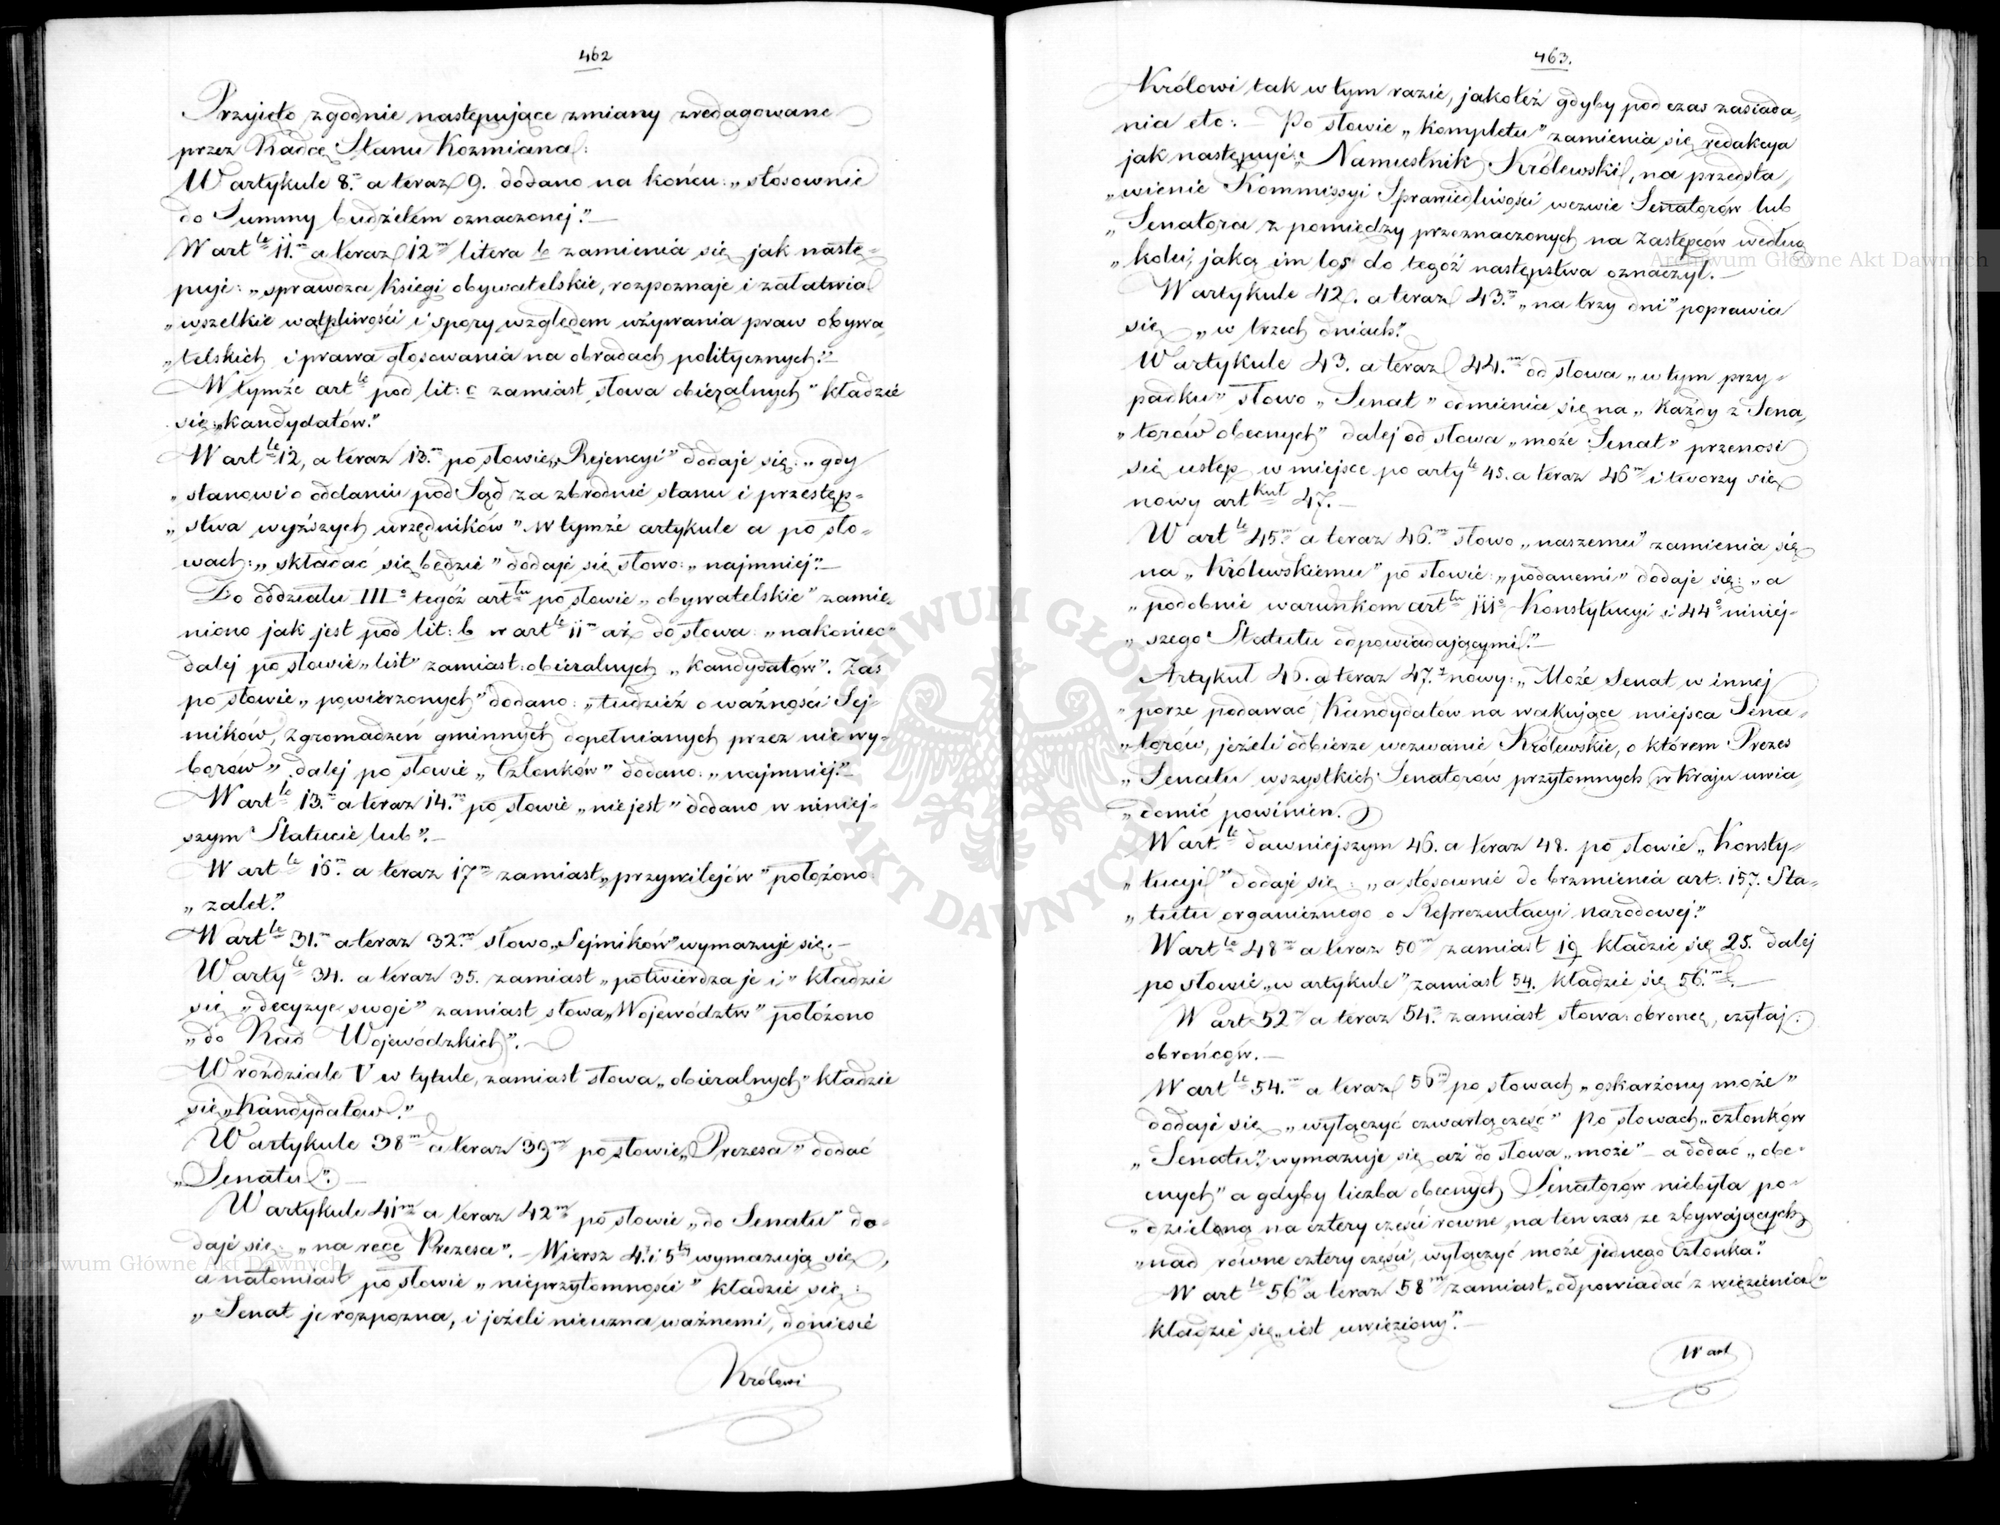 462
Przyięto zgodnie następujące zmiany zredagowane
przez Radcę Stanu Kozmiana:
W artykule 8.m a teraz 9. dodano na końcu: „stosownie
do Summy budżetem oznaczonej." —
W artle 11.m a teraz 12m litera b zamienia się jak nastę-
puje: „sprawdza księgi obywatelskie, rozpoznaje i załatwia
„wszelkie wątpliwości i spory względem używania praw obywa„
„telskich i prawa głosowania na obradach politycznych." —
W tymże artle pod lit: c zamiast słowa obieralnych" kładzie
się „kandydatów."
W artle 12, a teraz 13.m po słowie „Rejencyi" dodaje się: „gdy
„stanowi o oddaniu pod Sąd za zbrodnie stanu i przestęp-
„stwa wyższych urzędników" W tymże artykule a po sło-
wach: „składać się będzie" dodaje się słowo: „najmniej." —
Do oddziału IIIo tegóż artłu po słowie „obywatelskie" zamie-
niono jak jest pod lit: b w artle 11m aż do słowa: „nakoniec"
dalej po słowie „list" zamiast: obieralnych „kandydatów". Zaś
po słowie „powierzonych" dodano: „tudzież o ważności Sej-
mików, zgromadzeń gminnych dopełnianych przez nie wy-
borów" dalej po słowie „Członków" dodano: „najmniej." —
W artle 13.m a teraz 14.m po słowie „nie jest" dodano w niniej-
szym Statucie lub". —
W artle 16m. a teraz 17m zamiast „przywilejów" położono:
„zalet."
W artle 31.m a teraz 32.m słowo „Sejmików" wymazuje się. —
W artyle 34. a teraz 35. zamiast „potwierdza je i" kładzie
się „decyzye swoje" zamiast słowa „Województw" położono
„do Rad Wojewódzkich". —
W rozdziale V w tytule, zamiast słowa „obieralnych" kładzie
się „Kandydatów."
W artykule 38m a teraz 39m po słowie „Prezesa" dodać
„Senatu". —
W artykule 41m a teraz 42m po słowie „do Senatu" do-
daje się: „na ręce Prezesa". — Wiersz 4.i 5ty wymazują się,
a natomiast po słowie „nieprzytomności" kładzie się:
„Senat je rozpozna, i jeżeli nie uzna ważnemi, doniesie
Królowi
463.
Królowi tak w tym razie, jakoteż gdyby podczas zasiada„
nia etc: — Po słowie „kompletu" zamienia się redakcya
jak następuje: Namiestnik Królewski, na przedsta„
„wienie Kommissyi Sprawiedliwości wezwie Senatorów lub
„Senatora z pomiędzy przeznaczonych na Zastępców według
„kolei, jaką im los do tegóż następstwa oznaczył. —
W artykule 42. a teraz 43.m „na trzy dni" poprawia
się „w trzech dniach."
W artykule 43. a teraz 44.m od słowa „w tym przy-
padku" słowo „Senat" odmienia się na „Każdy z Sena„
„torów obecnych" dalej od słowa „może Senat" przenosi
się ustęp w miejsce po artyle 45. a teraz 46m i tworzy się
nowy artkuł 47. —
W artle 45.m a teraz 46.m słowo „naszemu" zamienia się
na „Królewskiemu" po słowie: „podanemi" dodaje się: „a
„podobnie warunkom artłu 111o Konstytucyi i 44o niniej-
„szego Statutu odpowiadającymi." —
Artykuł 46. a teraz 47.y nowy: „Może Senat w innej
„porze podawać Kandydatów na wakujące miejsca Sena-
„torów, jeżeli odbierze wezwanie Królewskie, o którem Prezes
„Senatu wszystkich Senatorów przytomnych w kraju uwia„
„domić powinien.
W artle dawniejszym 46. a teraz 48. po słowie „Konsty-
„tucyi" dodaje się: „a stosownie do brzmienia art: 157. Sta-
„tutu organicznego o Reprezentacyi narodowej."
W artle 48m a teraz 50m zamiast 19 kładzie się 25. dalej
po słowie „w artykule" zamiast 54. kładzie się 56.m. —
W art 52m a teraz 54.m zamiast słowa: obrońcę, czytaj:
obrońców. —
W artle 54.m a teraz 56m po słowach „oskarżony może"
dodaje się „wyłączyć czwartą część" Po słowach „członków
„Senatu" wymazuje się aż do słowa „może" — a dodać „obe-
cnych" a gdyby liczba obecnych Senatorów niebyła po-
„dzieloną na cztery części równe, na ten czas ze zbywających
„nad równe cztery części, wyłączyć może jednego Członka."
W artle 56m a teraz 58m zamiast „odpowiadać z więzienia"
kładzie się „iest uwięziony." —
W art